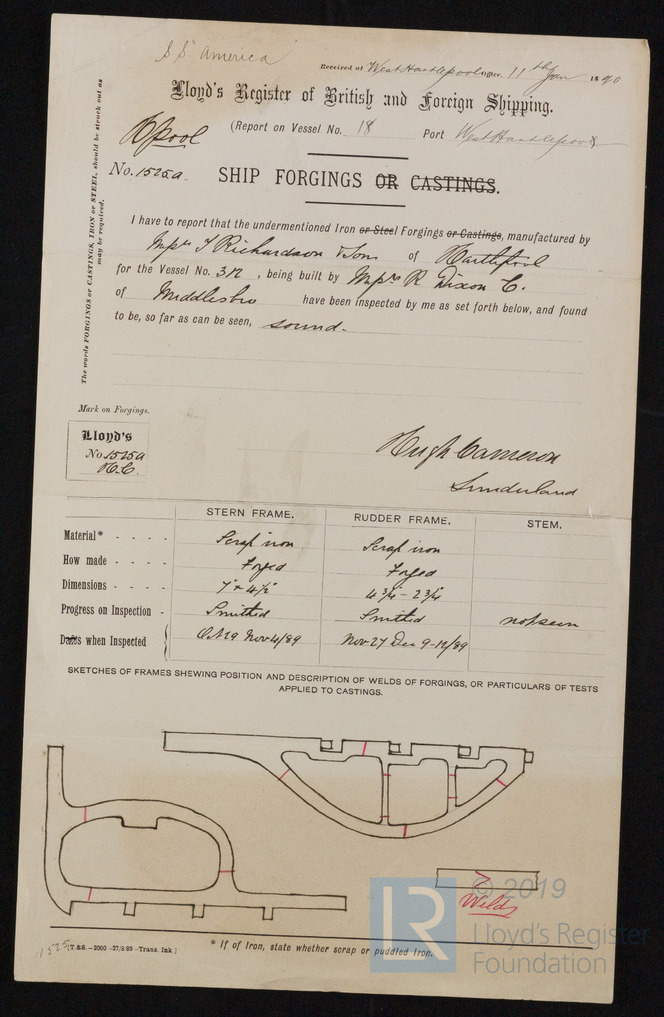 S S "America"
Received at West Hartlepool Office, 11th Jan 1890
Lloyd's Register of British and Foreign Shipping.
(Report on Vessel No. 18 Port West Hartlepool
Hpool
No. 1525a.
SHIP FORGINGS OR CASTINGS.
The words FORGINGS or CASTINGS, IRON or STEEL, should be struck out as
may be required.
I have to report that the undermentioned Iron or Steel Forgings or Castings, manufactured by
T Richardson & Sons of Hartlepool
for the Vessel No. 312, being built by R Dixon & C.
of Middlesbro have been inspected by me as set forth below, and found
to be, so far as can be seen, sound.
Mark on Forgings.
Lloyd's
No 1525a
H.C.
Hugh Cameron
Sunderland
STERN FRAME. RUDDER FRAME. STEM.
Material* - - - - Scrap iron Scrap iron
How made - - - - Forged Forged
Dimensions - - - - 7" x 4½" 4¾ - 2¾"
Progress on Inspection - Smithed Smithed not seen
Dates when Inspected Oct 29 Nov 4/89 Nov 27 Dec 9-12/89
SKETCHES OF FRAMES SHEWING POSITION AND DESCRIPTION OF WELDS OF FORGINGS, OR PARTICULARS OF TESTS
APPLIED TO CASTINGS.
Welds
© 2019
LR
Lloyd's Register
Foundation
1525
[T & S.—2000—27/8/89—Trans. Ink.]
* If of Iron, state whether scrap or puddled Iron.